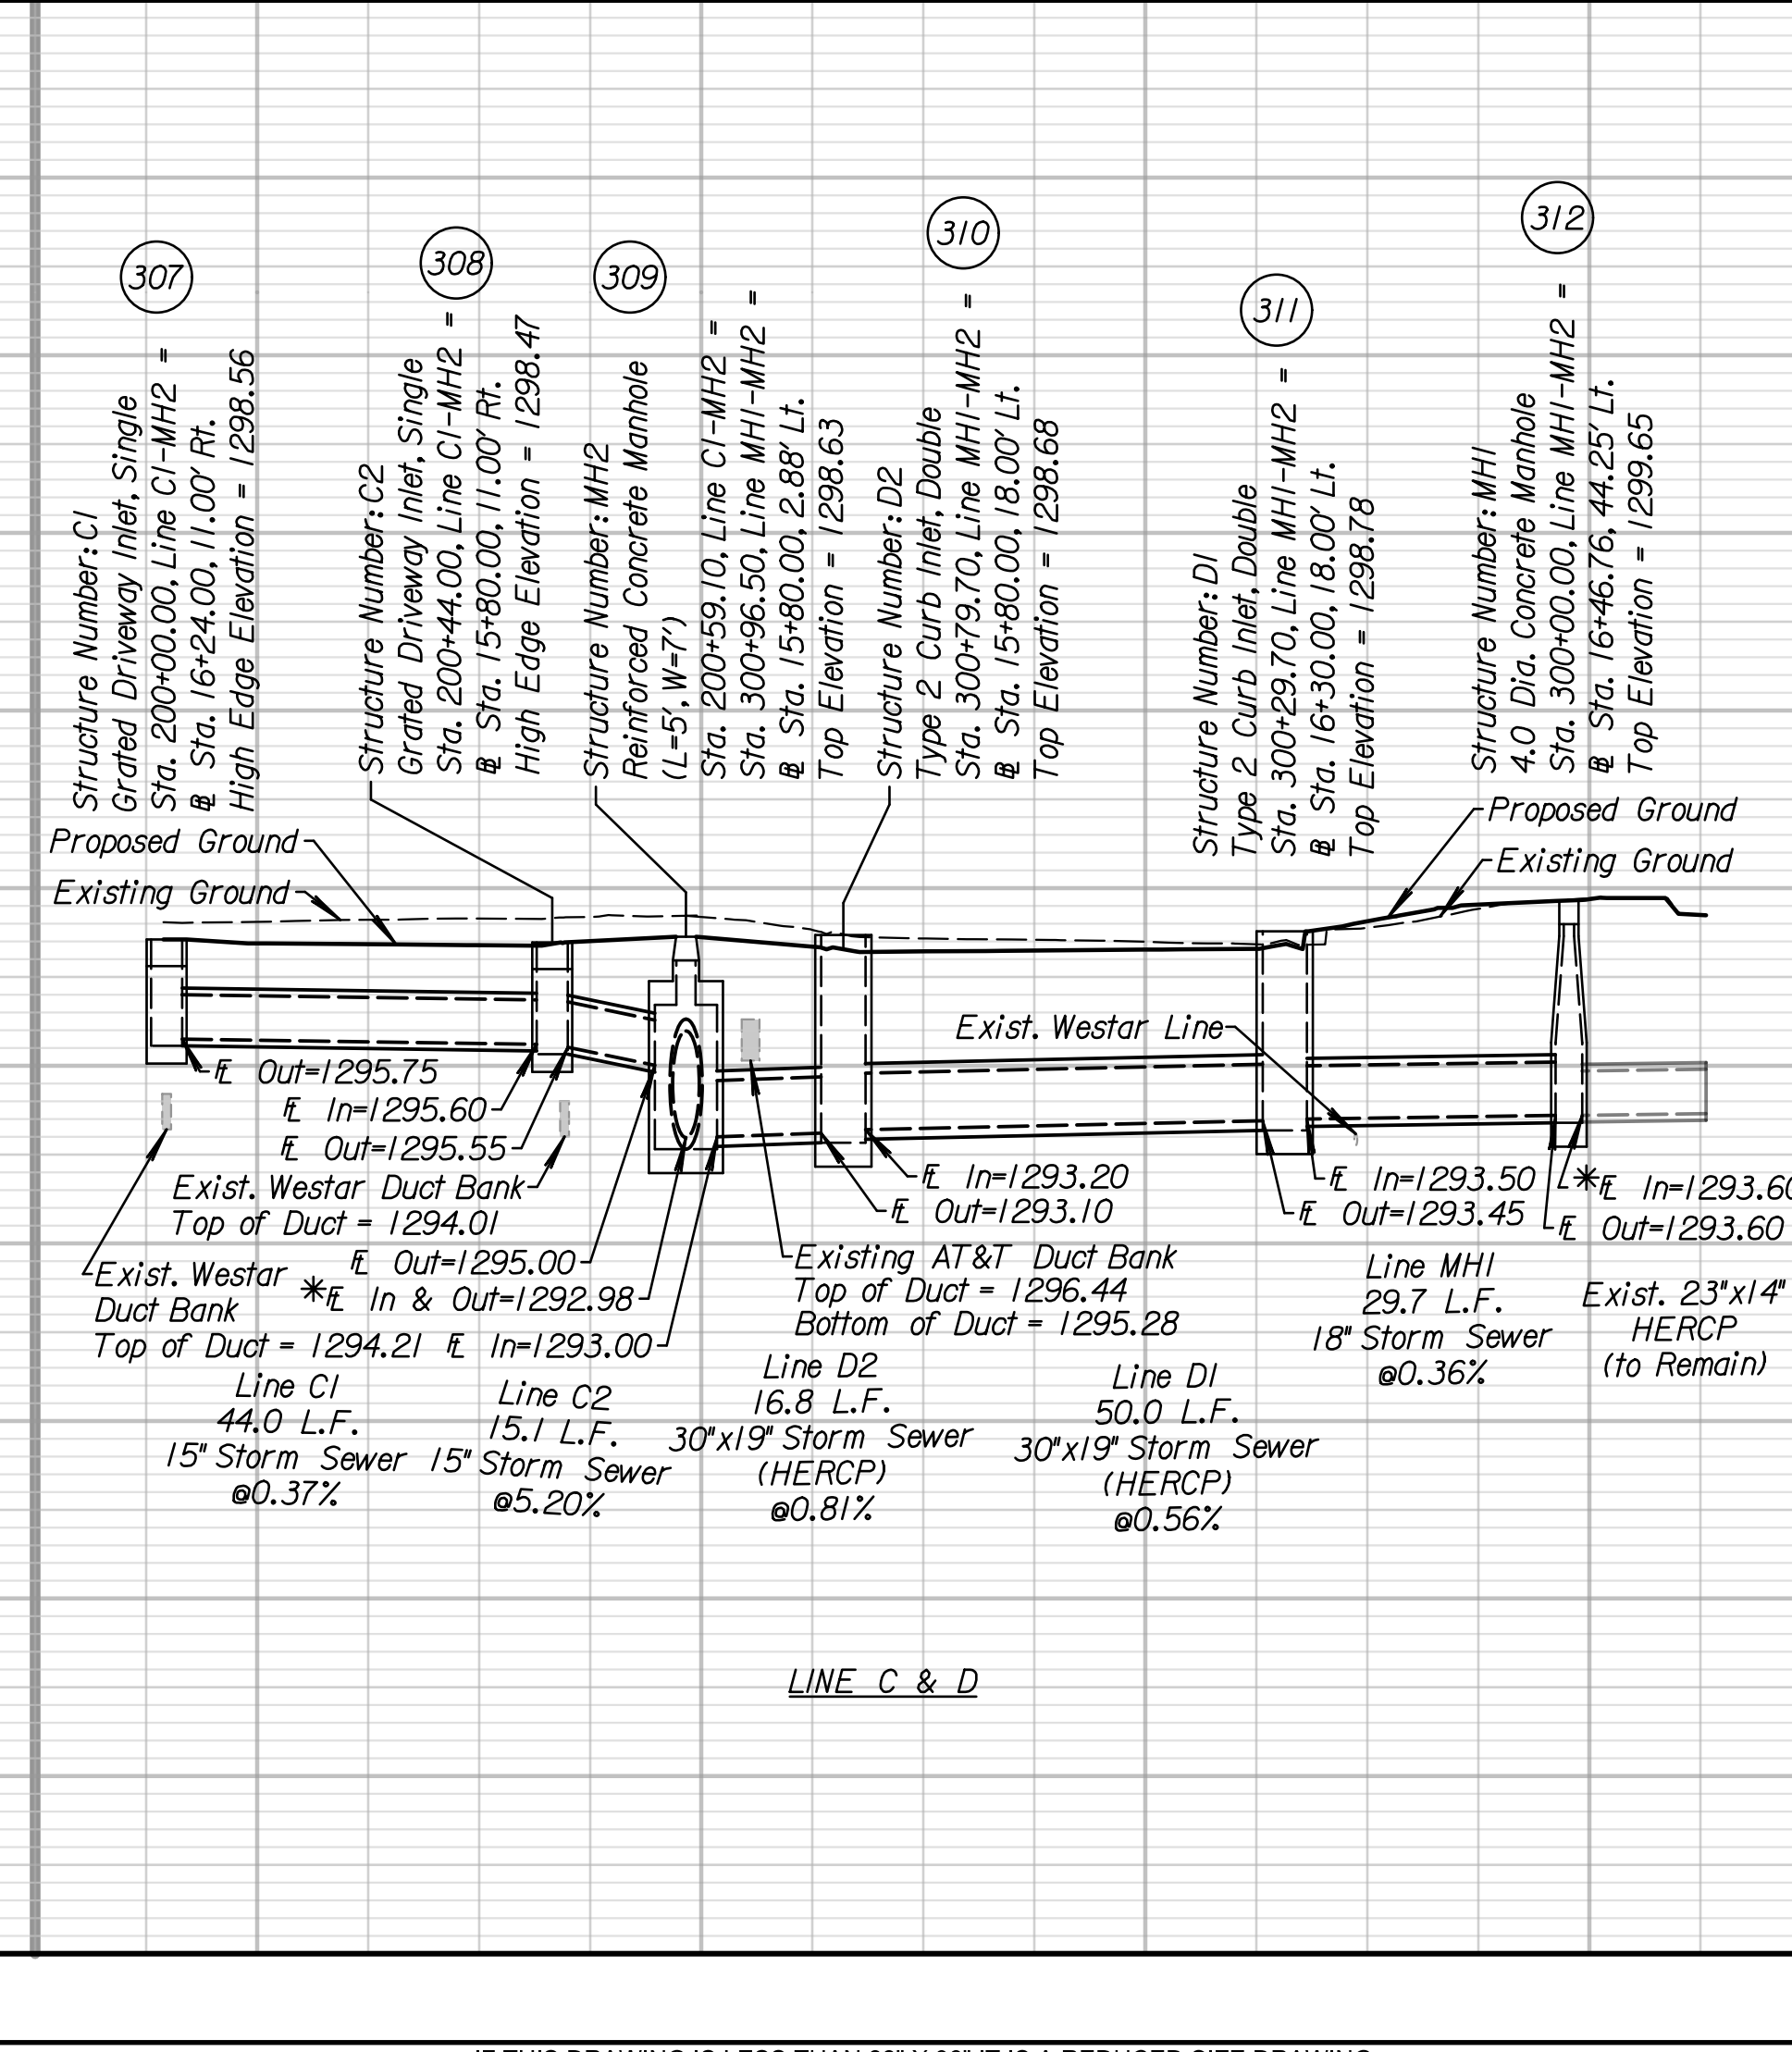 307
Structure Number:C1
Grated Driveway Inlet, Single
Sta. 200+00.00, Line C1-MH2 =
Sta. 16+24.00, 11.00' Rt.
High Edge Elevation = 1298.56
308
Structure Number:C2
Grated Driveway Inlet, Single
Sta. 200+44.00, Line C1-MH2 =
Sta. 15+80.00, 11.00' Rt.
High Edge Elevation = 1298.47
309
Structure Number:MH2
Reinforced Concrete Manhole
(L=5', W=7')
Sta. 200+59.10, Line C1-MH2 =
Sta. 300+96.50, Line MH1-MH2 =
Sta. 15+80.00, 2.88' Lt.
Top Elevation = 1298.63
310
Structure Number:D2
Type 2 Curb Inlet, Double
Sta. 300+79.70, Line MH1-MH2 =
Sta. 15+80.00, 18.00' Lt.
Top Elevation = 1298.68
311
Structure Number:D1
Type 2 Curb Inlet, Double
Sta. 300+29.70, Line MH1-MH2 =
Sta. 16+30.00, 18.00' Lt.
Top Elevation = 1298.78
312
Structure Number:MH1
4.0 Dia. Concrete Manhole
Sta. 300+00.00, Line MH1-MH2 =
Sta. 16+46.76, 44.25' Lt.
Top Elevation = 1299.65
Proposed Ground
Existing Ground
Proposed Ground
Existing Ground
Exist. Westar Line
FL Out=1295.75
FL In=1295.60
FL Out=1295.55
Exist. Westar Duct Bank
Top of Duct = 1294.01
Exist. Westar
Duct Bank
Top of Duct = 1294.21
FL Out=1295.00
*FL In & Out=1292.98
FL In=1293.00
FL In=1293.20
FL Out=1293.10
Existing AT&T Duct Bank
Top of Duct = 1296.44
Bottom of Duct = 1295.28
FL In=1293.50
FL Out=1293.45
*FL In=1293.60
FL Out=1293.60
Line C1
44.0 L.F.
15" Storm Sewer
@0.37%
Line C2
15.1 L.F.
15" Storm Sewer
@5.20%
Line D2
16.8 L.F.
30"x19" Storm Sewer
(HERCP)
@0.81%
Line D1
50.0 L.F.
30"x19" Storm Sewer
(HERCP)
@0.56%
Line MH1
29.7 L.F.
18" Storm Sewer
@0.36%
Exist. 23"x14"
HERCP
(to Remain)
LINE C & D